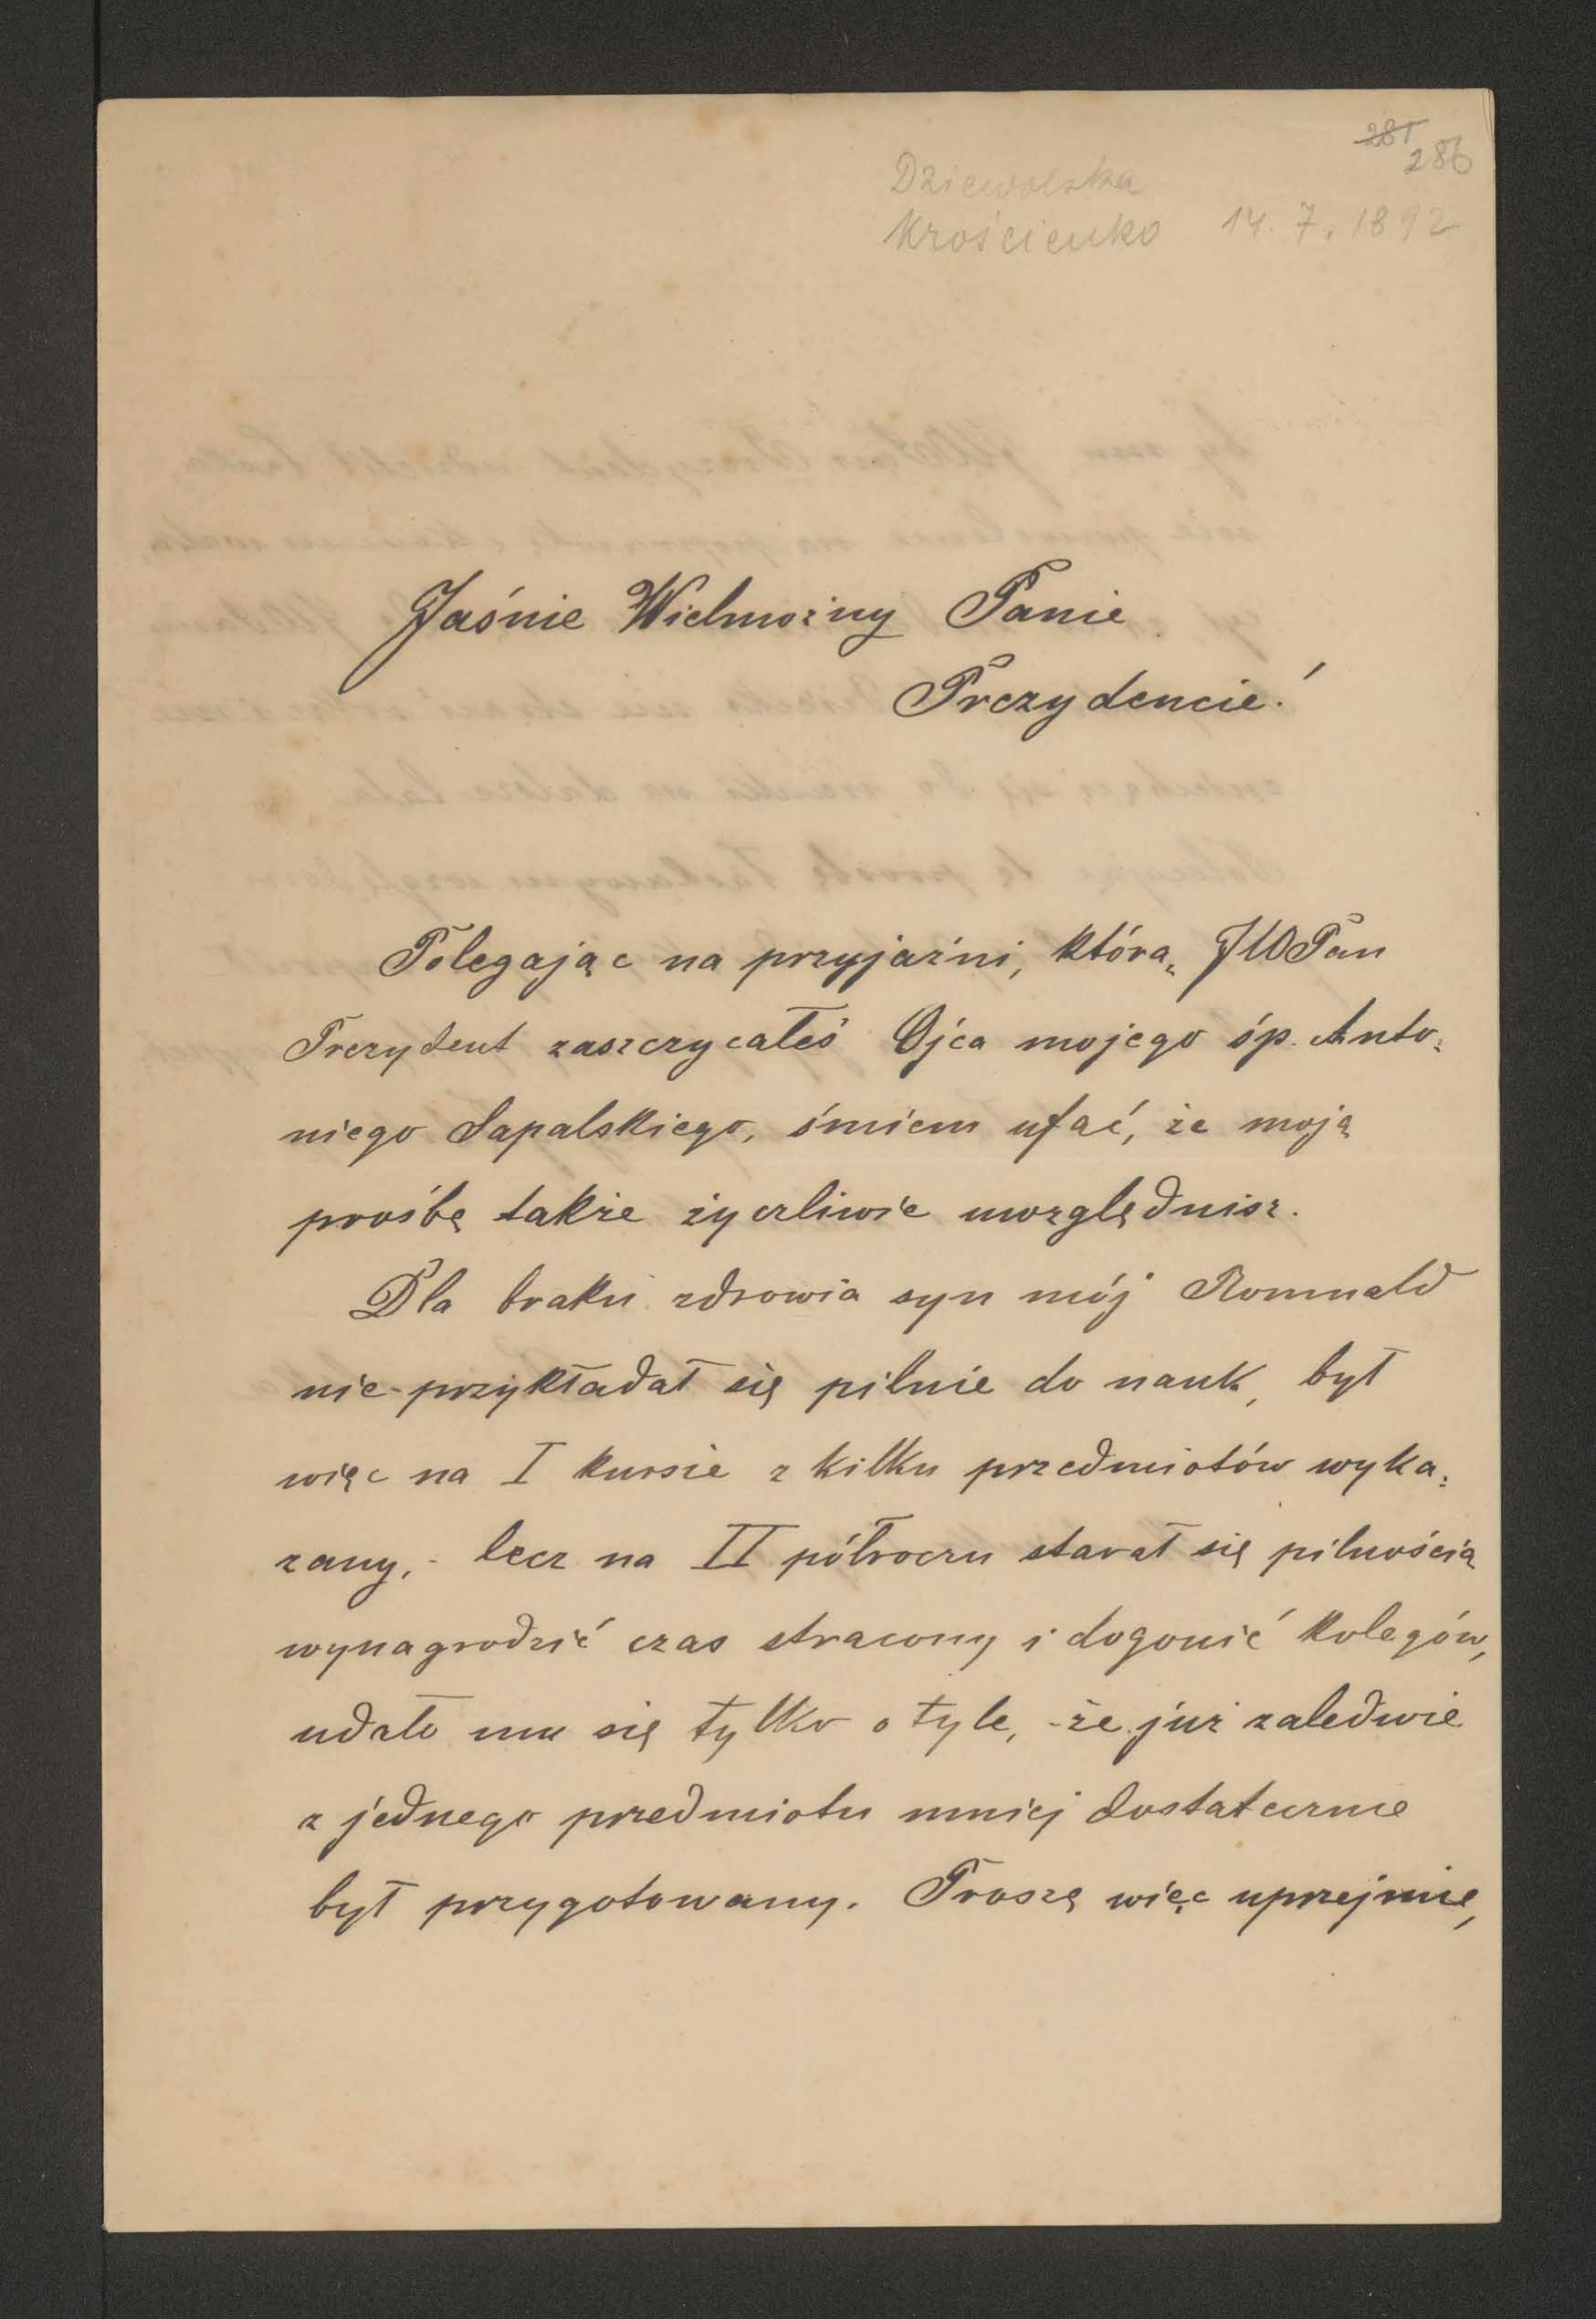 281
286
Dziewolska
Krościenko 14. 7. 1892
Jaśnie Wielmożny Panie
Prezydencie!
Polegając na przyjaźni, którą JWPan
Prezydent zaszczycałeś Ojca mojego śp. Anto=
niego Sapalskiego, śmiem ufać, że moją
prośbę także życzliwie uwzględnisz.
Dla braku zdrowia syn mój Romuald
nie przykładał się pilnie do nauk, był
więc na I kursie z kilku przedmiotów wyka=
zany, - lecz na II półroczu starał się pilnością
wynagrodzić czas stracony i dogonić kolegów,
udało mu się tylko o tyle, -że już zaledwie
z jednego przedmiotu mniej dostatecznie
był przygotowany. Proszę więc uprzejmie,